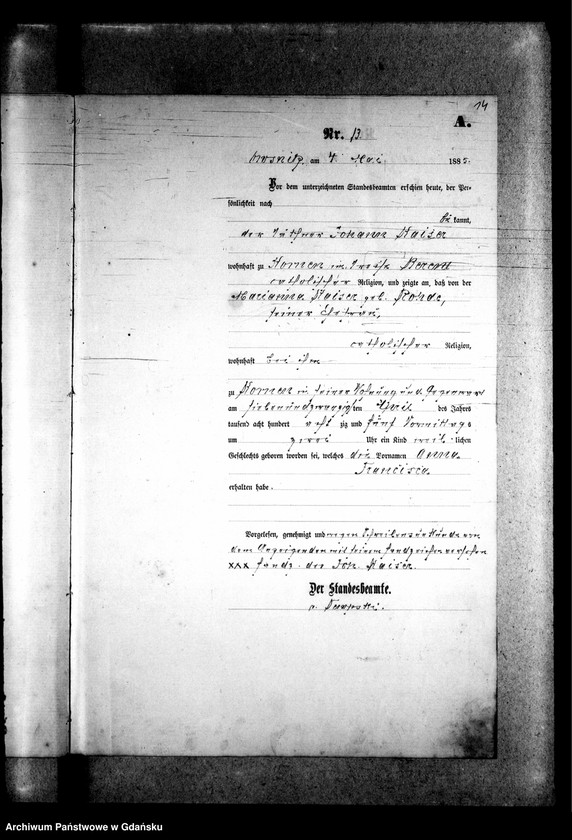 14
A.
Nr. 13.
am 4. Mai 1885.
Vor dem unterzeichneten Standesbeamten erschien heute, der Per-
sönlichkeit nach
bekannt,
der Käthner Johann Kaiser
wohnhaft zu Kornen im Kreise Berent
catholischer Religion, und zeigte an, daß von der
Marianna Kaiser geb. Rohde,
seiner Ehefrau,
catholischer Religion,
wohnhaft bei ihm
zu Kornen in seiner Wohnung und Gegenwart
am siebenundzwanzigsten April des Jahres
tausend acht hundert achtzig und fünf Vormittags
um zwei Uhr ein Kind weiblichen
Geschlechts geboren worden sei, welches die Vornamen Anna
Francisca
erhalten habe.
Vorgelesen, genehmigt und wegen Schreibensunkunde von
dem Anzeigenden mit seinem Handzeichen versehen
XXX Handz. des Joh. Kaiser.
Der Standesbeamte.
v.
Archiwum Państwowe w Gdańsku